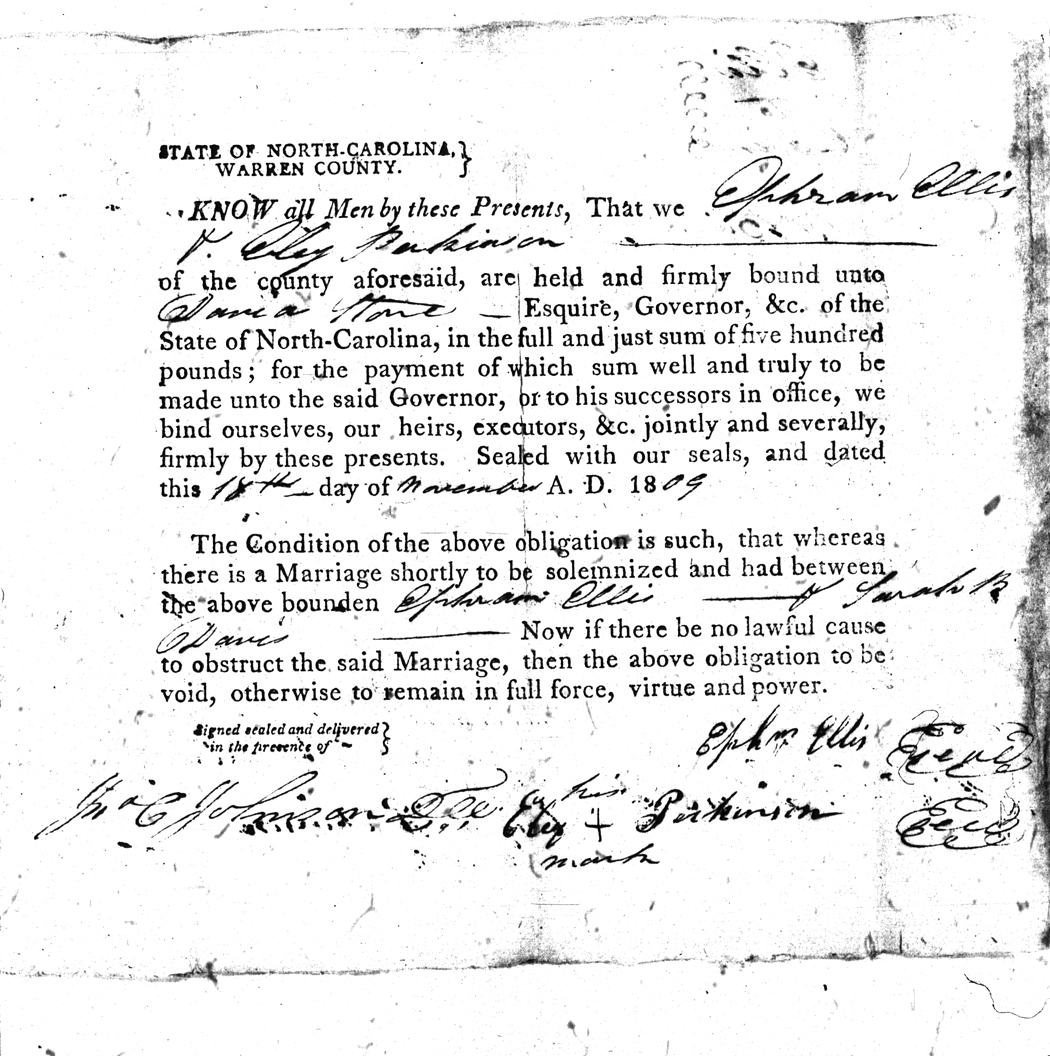 STATE OF NORTH-CAROLINA, }
WARREN COUNTY.
KNOW all Men by these Presents, That we Ephram Ellis
& Eley Perkinson
of the county aforesaid, are held and firmly bound unto
David Stone — Esquire, Governor, &c. of the
State of North-Carolina, in the full and just sum of five hundred
pounds; for the payment of which sum well and truly to be
made unto the said Governor, or to his successors in office, we
bind ourselves, our heirs, executors, &c. jointly and severally,
firmly by these presents. Sealed with our seals, and dated
this 18th day of November A. D. 1809
The Condition of the above obligation is such, that whereas
there is a Marriage shortly to be solemnized and had between
the above bounden Ephram Ellis — & Sarah B
Davis — Now if there be no lawful cause
to obstruct the said Marriage, then the above obligation to be
void, otherwise to remain in full force, virtue and power.
Signed sealed and delivered }
in the presence of
Ephm Ellis Seal
Jno C Johnson Eley his + Perkinson Seal
mark